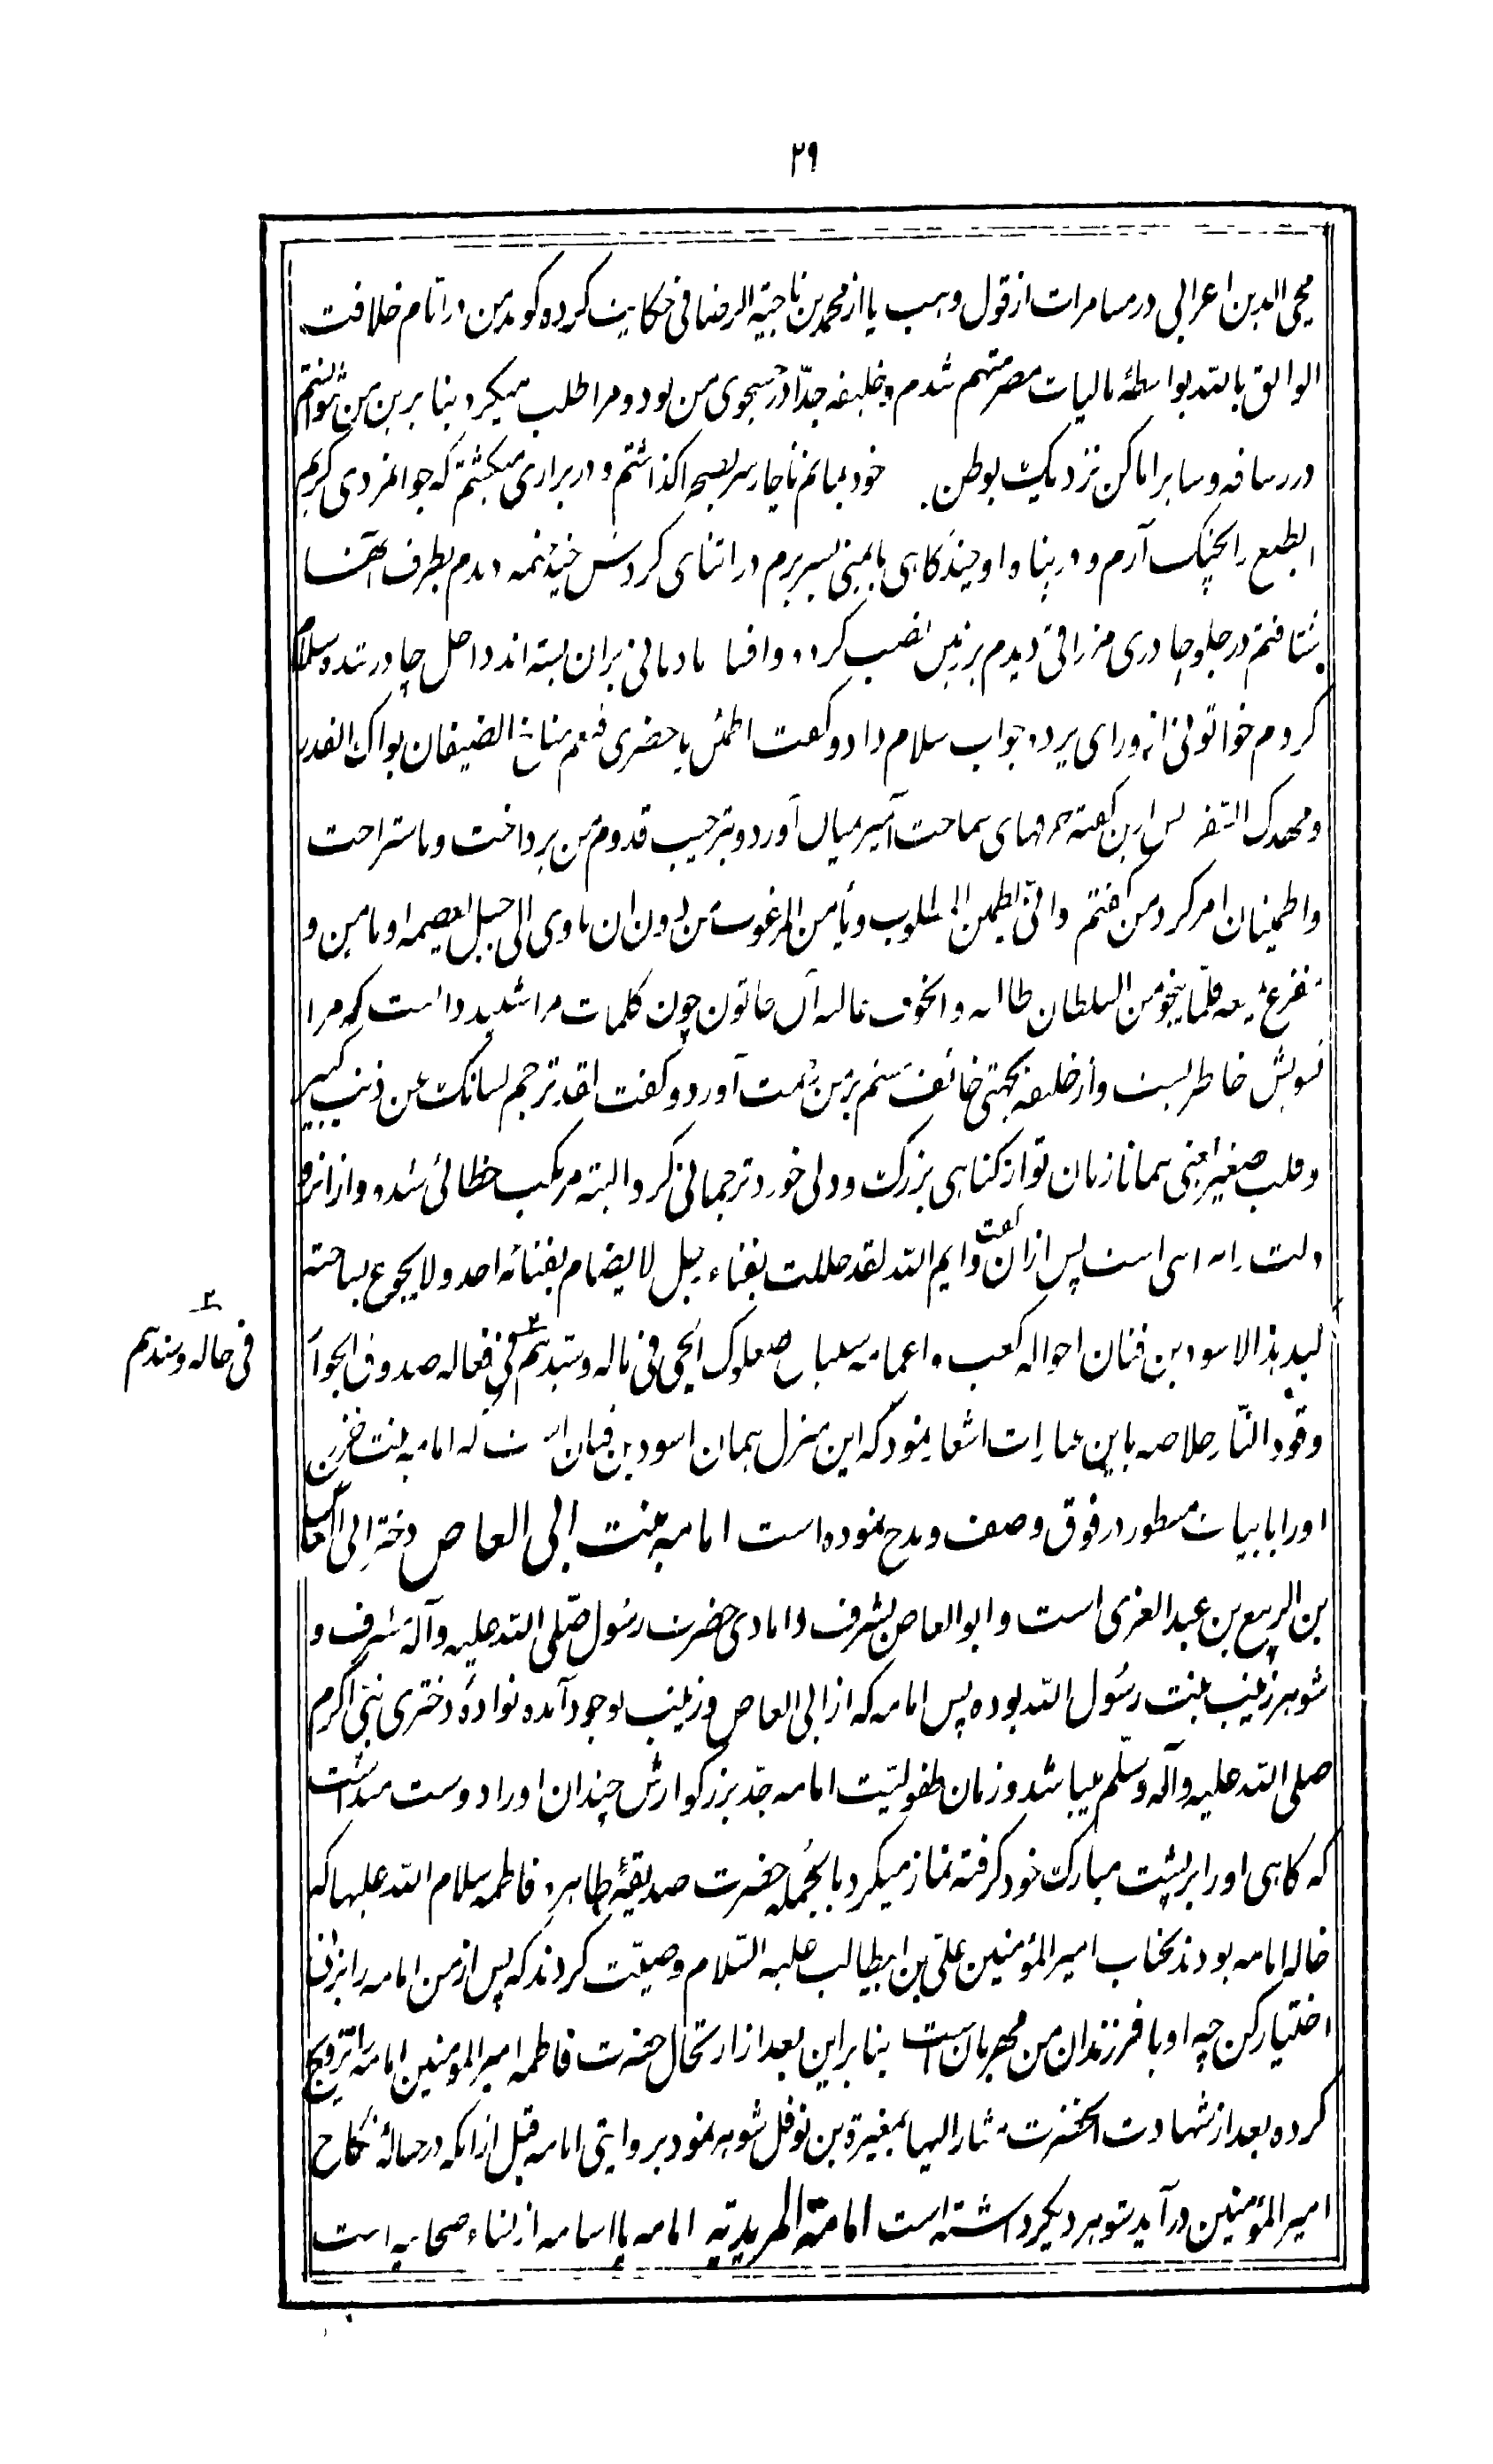 ۲۹
محیی الدین اعرابی در مسامرات از قول وهب یا از محمد بن ناجیة الرصافی حکایت کرده گوید من در ایام خلافت
الواثق بالله بواسطهٔ مالیات مصر متهم شدم و خلیفه جدّا در جستجوی من بود و مرا طلب میکرد بنا برین من نتوانستم
در رصافه و سایر اماکن نزدیک بوطن خود بمانم ناچار سر بصحرا گذاشتم و در براری میگشتم که جوانمردی کریم
الطبع را بچنگ آرم و در پناه او چندگاهی بایمنی بسر برم در اثنای گردش خیمه دیدم بطرف آنها
شتافتم در جلو چادری مزراقی دیدم بر زمین نصب کرده و مادیانی بران بسته‌اند داخل چادر شده و سلام
کردم خاتونی از ورای پرده جواب سلام داد و گفت اطمئن یا حضری فنعم مناخ الضیفان بواک القدر
و مهدک السفر پس ازین گفته حرفهای سماحت آمیز میان آورد و بترحیب قدوم من پرداخت و باستراحت
و اطمینان امر کرد من گفتم و انّی یطمئن المطلوب و یأمن المرغوب من دون ان یأوی الی جبل یعصمه او مأمن و
مفزع یمنعه فلمّا ینجو من السلطان طالبه و الخوف غالبه آن خاتون چون کلمات مرا شنید دانست که مرا
تشویش خاطریست و از خلیفه بجهتی خائف هستم بر من رحمت آورد و گفت لقد ترجم لسانک عن ذنب کبیر
و قلب صغیر یعنی همانا زبان تو از گناهی بزرگ و دلی خورد ترجمانی کرد البته مرتکب خطائی شده و از انرو
است پس ازان گفت و ایم الله لقد حللت بفناء رجل لا یضام بفنائه احد و لا یجوع بساحته
لبد هذا الاسود بن قنان اخواله کعب و اعمامه صعلوک الحی فی ماله و سیّدهم ۲ فی فعاله صدوق الجوار
۲ فی حاله و سندهم
وقود النّار خلاصه باین عبارات اشعار نمود که این منزل همان اسود بن قنان است که امامه بنت خزرج
او را بابیات مسطور در فوق وصف و مدح نموده است امامه بنت ابی العاص دختر ابی العاص
بن الربیع بن عبد العزی است و ابو العاص بشرف دامادی حضرت رسول صلّی الله علیه و آله مشرف و
شوهر زینب بنت رسول الله بوده پس امامه که از ابی العاص و زینب بوجود آمده نوادهٔ دختری نبیّ اکرم
صلی الله علیه و آله و سلّم میباشد و زمان طفولیّت امامه جد بزرگوارش چندان او را دوست میداشت
که گاهی او را بر پشت مبارک خود گرفته نماز میکرد بالجمله حضرت صدیقهٔ طاهره فاطمه سلام الله علیها که
خاله امامه بودند بجناب امیر المؤمنین علیّ بن ابیطالب علیه السّلام وصیّت کردند که پس از من امامه را بزنی
اختیار کن چه او با فرزندان من مهربان است بنا براین بعد از ارتحال حضرت فاطمه امیر المومنین امامه را تزویج
کرده بعد از شهادت آنحضرت مشار الیها بمغیرة بن نوفل شوهر نمود بروایتی امامه قبل ازانکه در حبالهٔ نکاح
امیر المؤمنین درآید شوهر دیگر داشته است امامة المریدیّه امامه یا اسامه از نساء صحابیه است